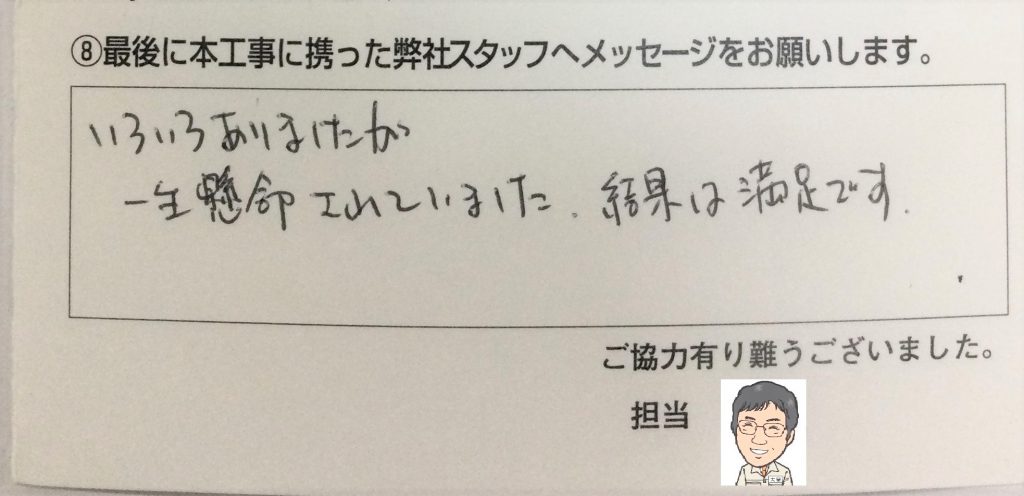 ⑧最後に本工事に携った弊社スタッフへメッセージをお願いします。
いろいろありましたが
一生懸命されていました。結果は満足です。
ご協力有り難うございました。
担当